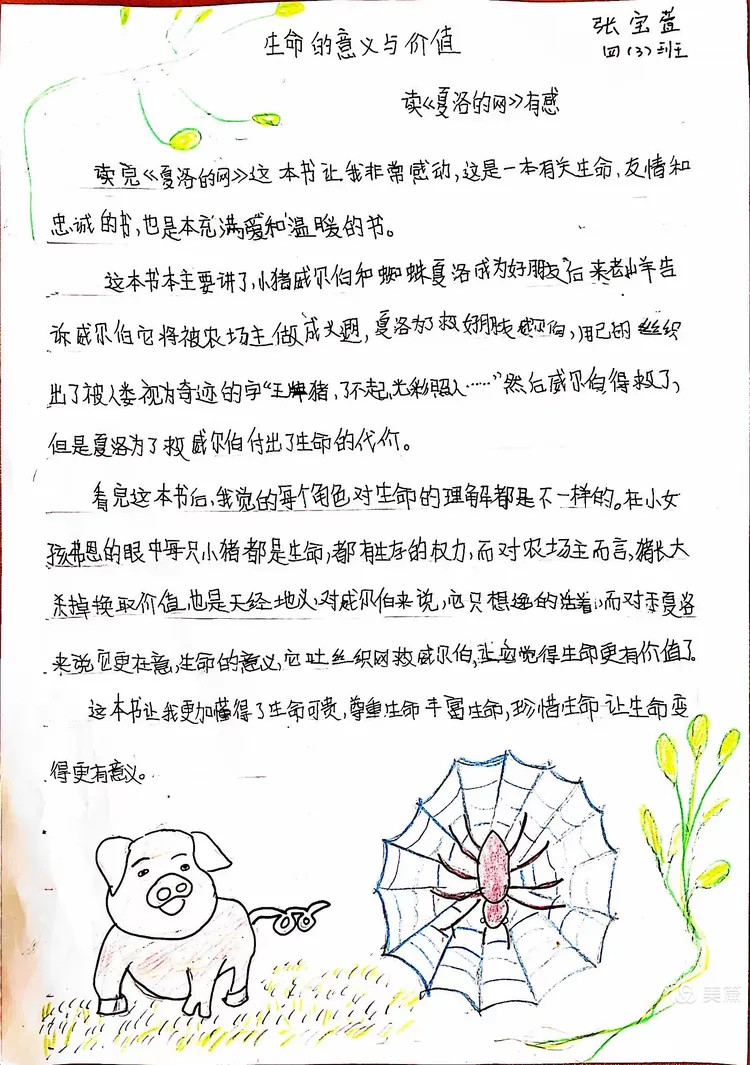 生命的意义与价值
张宝萱
四(3)班
读《夏洛的网》有感
读完《夏洛的网》这本书让我非常感动,这是一本有关生命、友情和
忠诚的书,也是本充满爱和温暖的书。
这本书本主要讲了,小猪威尔伯和蜘蛛夏洛成为好朋友,后来老山羊告
诉威尔伯它将被农场主做成火腿,夏洛为了救好朋友威尔伯,用己的丝织
出了被人类视为奇迹的字“王牌猪,了不起,光彩照人……”然后威尔伯得救了,
但是夏洛为了救威尔伯付出了生命的代价。
看完这本书后,我觉的每个角色对生命的理解都是不一样的。在小女
孩弗恩的眼中每只小猪都是生命,都有生存的权力,而对农场主而言,猪长大
杀掉换取价值,也是天经地义,对威尔伯来说,它只想的活着,而对于夏洛
来说它更在意,生命的意义,它吐丝织网救威尔伯,让它觉得生命更有价值了。
这本书让我更加懂得了生命可贵,尊重生命丰富生命,珍惜生命让生命变
得更有意义。
美篇